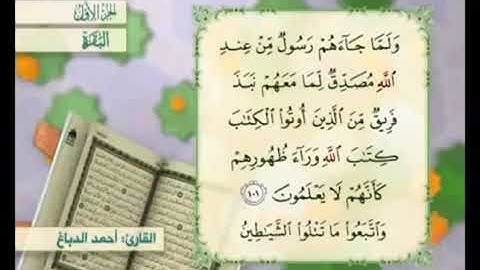 الجزء الأول
البقرة
وَلَمَّا جَآءَهُمْ رَسُولٌ مِّنْ عِندِ
اللَّهِ مُصَدِّقٌ لِّمَا مَعَهُمْ نَبَذَ
فَرِيقٌ مِّنَ الَّذِينَ أُوتُوا۟ الْكِتَٰبَ
كِتَٰبَ اللَّهِ وَرَآءَ ظُهُورِهِمْ
كَأَنَّهُمْ لَا يَعْلَمُونَ ١٠١
وَاتَّبَعُوا۟ مَا تَتْلُوا۟ الشَّيَٰطِينُ
القارئ: أحمد الدباغ